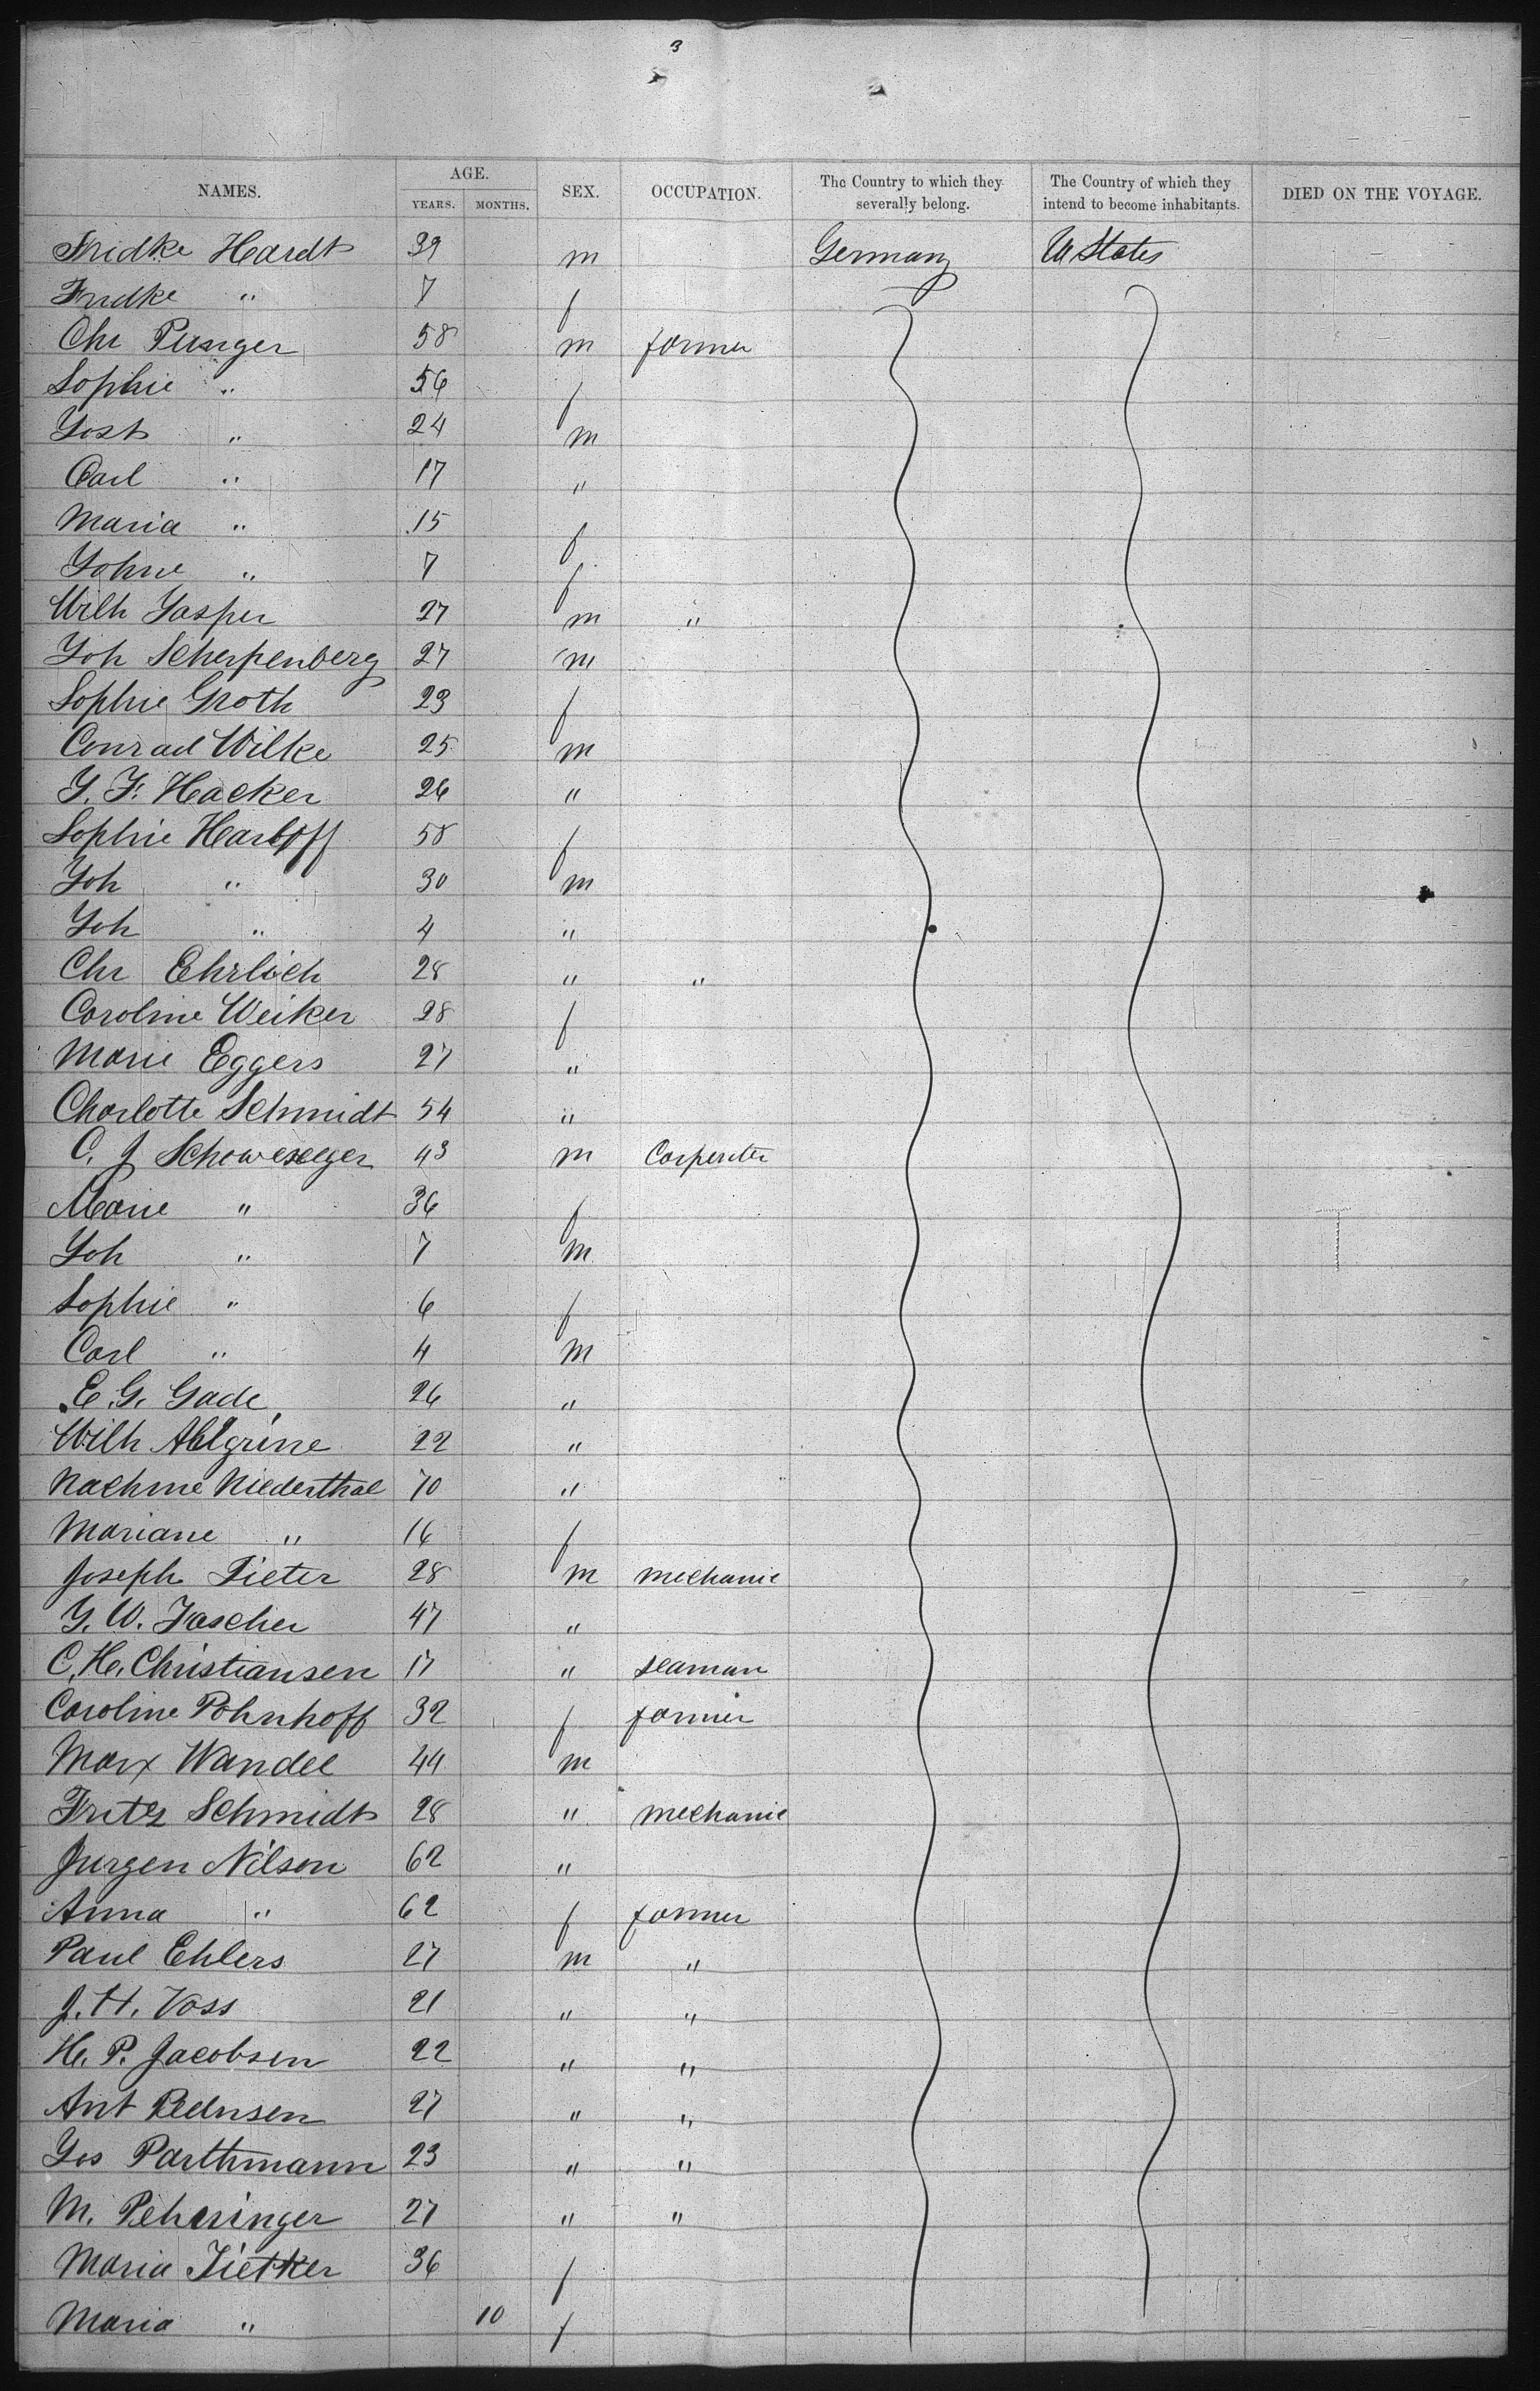 3
NAMES. AGE. YEARS. MONTHS. SEX. OCCUPATION. The Country to which they severally belong. The Country of which they intend to become inhabitants. DIED ON THE VOYAGE.
Fridke Hardt 39 m Germany U States
Fridke " 7 f
Chr Punger 58 m farmer
Sophie " 56 f
Jost " 24 m
Carl " 17 "
Maria " 15 f
Johne " 7 f
Wilh Jasper 27 m "
Joh Scherpenberg 27 m
Sophie Groth 23 f
Conrad Wilke 25 m
J. F. Hacker 26 "
Sophie Harloff 58 f
Joh " 30 m
Joh " 4 "
Chr Ehrlich 28 " "
Caroline Weiker 28 f
Marie Eggers 27 "
Charlotte Schmidt 54 "
C. J 43 m Carpenter
Marie " 36 f
Joh " 7 m
Sophie " 6 f
Carl " 4 m
E. G. Gade 26 "
Wilh Ahlgrine 22 "
Nachme Niederthal 70 "
Mariane " 16 f
Joseph Tieter 28 m mechanic
J. W. Jascher 47 "
C. H. Christiansen 17 " seaman
Caroline Pohnhoff 32 f farmer
Marx Wandel 44 m
Fritz Schmidt 28 " mechanic
Jurgen Nilson 62 "
Anna " 62 f farmer
Paul Ehlers 27 m "
J. H. Voss 21 " "
H. P. Jacobsen 22 " "
Ant Pedersen 27 " "
Jos Parthmann 23 " "
M. Pehringer 27 " "
Maria Tietker 36 f
Maria " 10 f